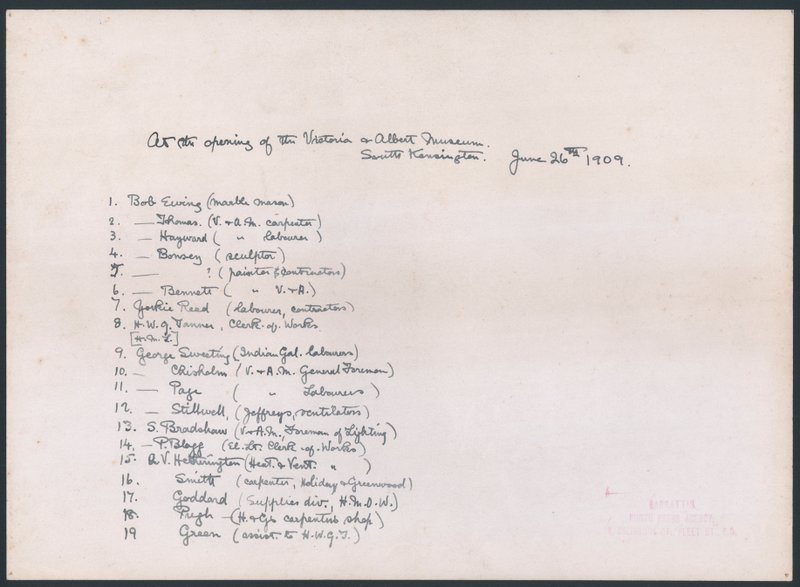 At the opening of the Victoria & Albert Museum.
South Kensington. June 26TH 1909.
1. Bob Ewing (marble mason)
2. — Thomas. (V. & A.M. carpenter)
3. — Hayward ( " labourer )
4. — Bonsey (sculptor)
5. — ? (painter & contractors)
6. — Bennett ( " V. & A.)
7. Yorkie Read (labourer, contractors)
8. H.W.G. Tanner, Clerk-of-Works.
9. George Sweeting (Indian Gal. labourers)
10. — Chisholm (V. & A.M. General Foreman)
11. — Page ( " Labourers )
12. — Stillwell, (Jeffreys, ventilators)
13. S. Bradshaw (V. & A.M., Foreman of Lighting)
14. — P. Blagg (El. Lt. Clerk-of-Works)
15. A V. Hetherington (Heat. & Vent. " )
16. Smith (carpenter, Holiday & Greenwood)
17. Goddard (Supplies div., H.M.O.W.)
18. Pugh — (H. & G's carpenters shop)
19 Green (assist. to H.W.G.T.)
BARRATT'S
PHOTO PRESS AGENCY,
FLEET ST., E.C.